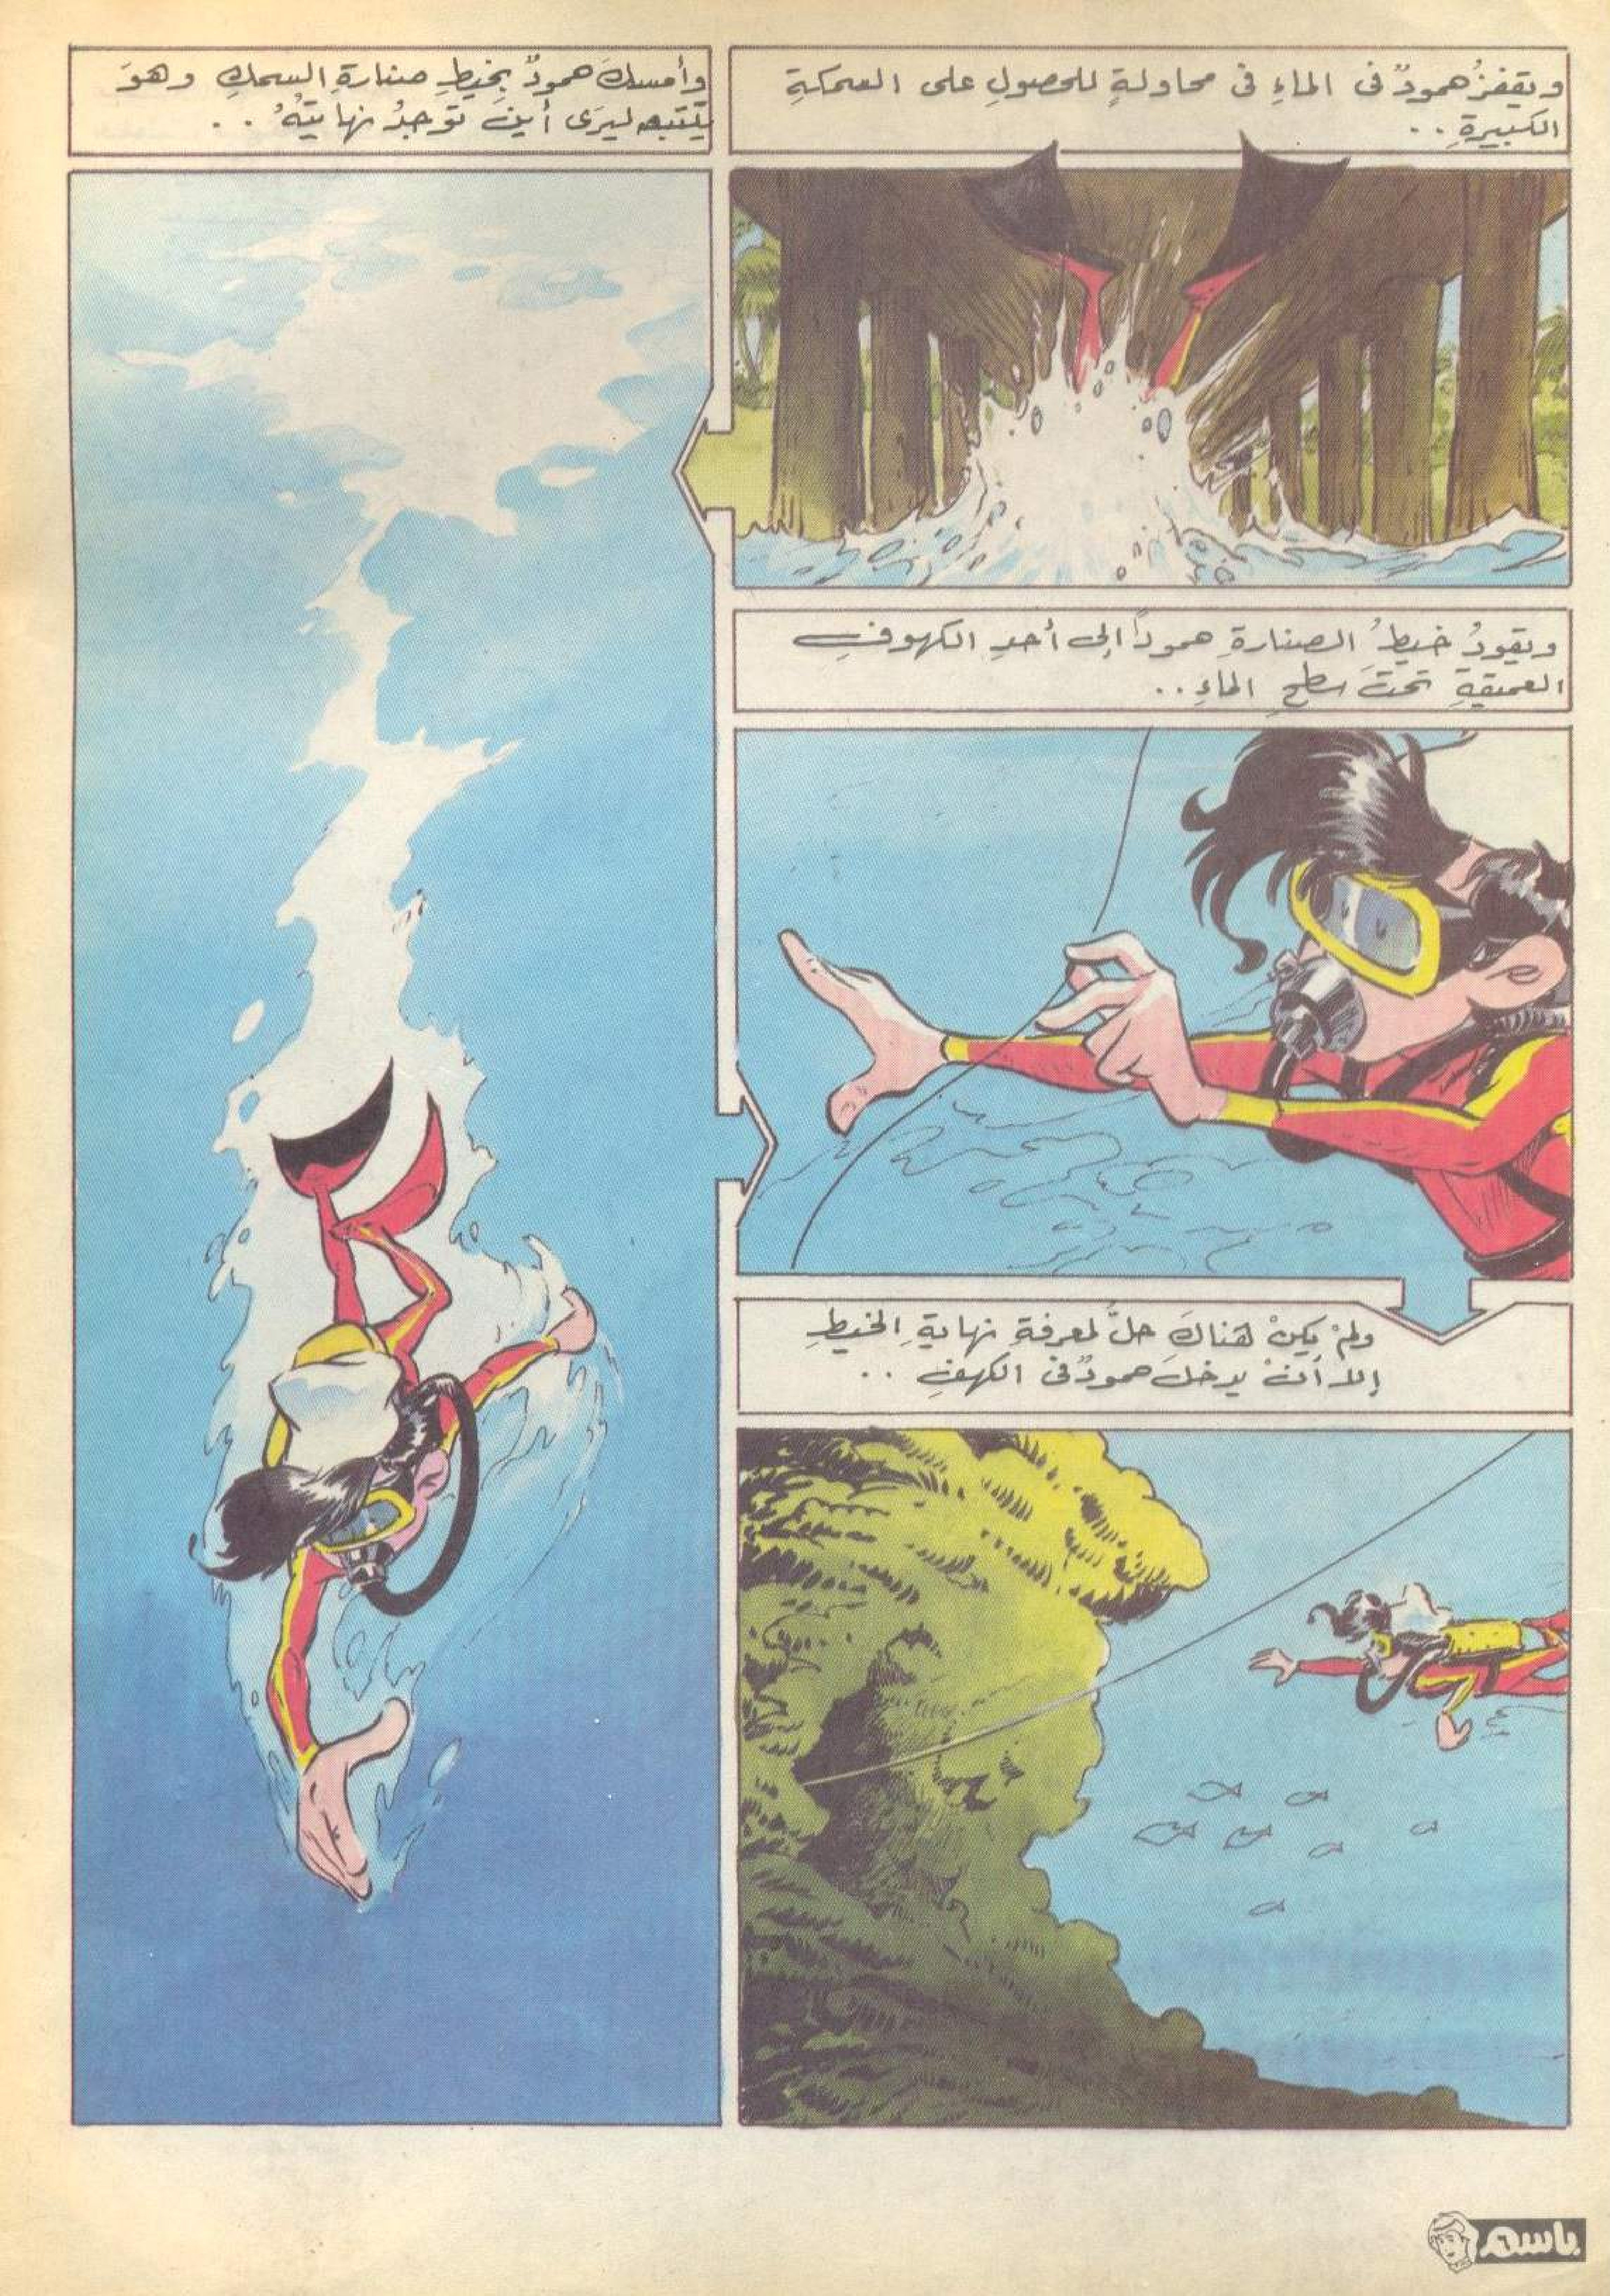 ويقفزُ حمودٌ فى الماءِ فى محاولةٍ للحصولِ على السمكةِ
الكبيرةِ ..
وأمسكَ حمودٌ بخيطِ صنارةِ السمكِ وهوَ
يتتبعه ليرَى أينَ توجدُ نهايتُهُ ..
ويقودُ خيطُ الصنارةِ حموداً إلى أحدِ الكهوفِ
العميقةِ تحتَ سطحِ الماءِ ..
ولمْ يكنْ هناكَ حلٌّ لمعرفةِ نهايةِ الخيطِ
إلا أنْ يدخلَ حمودٌ فى الكهفِ ..
باسم